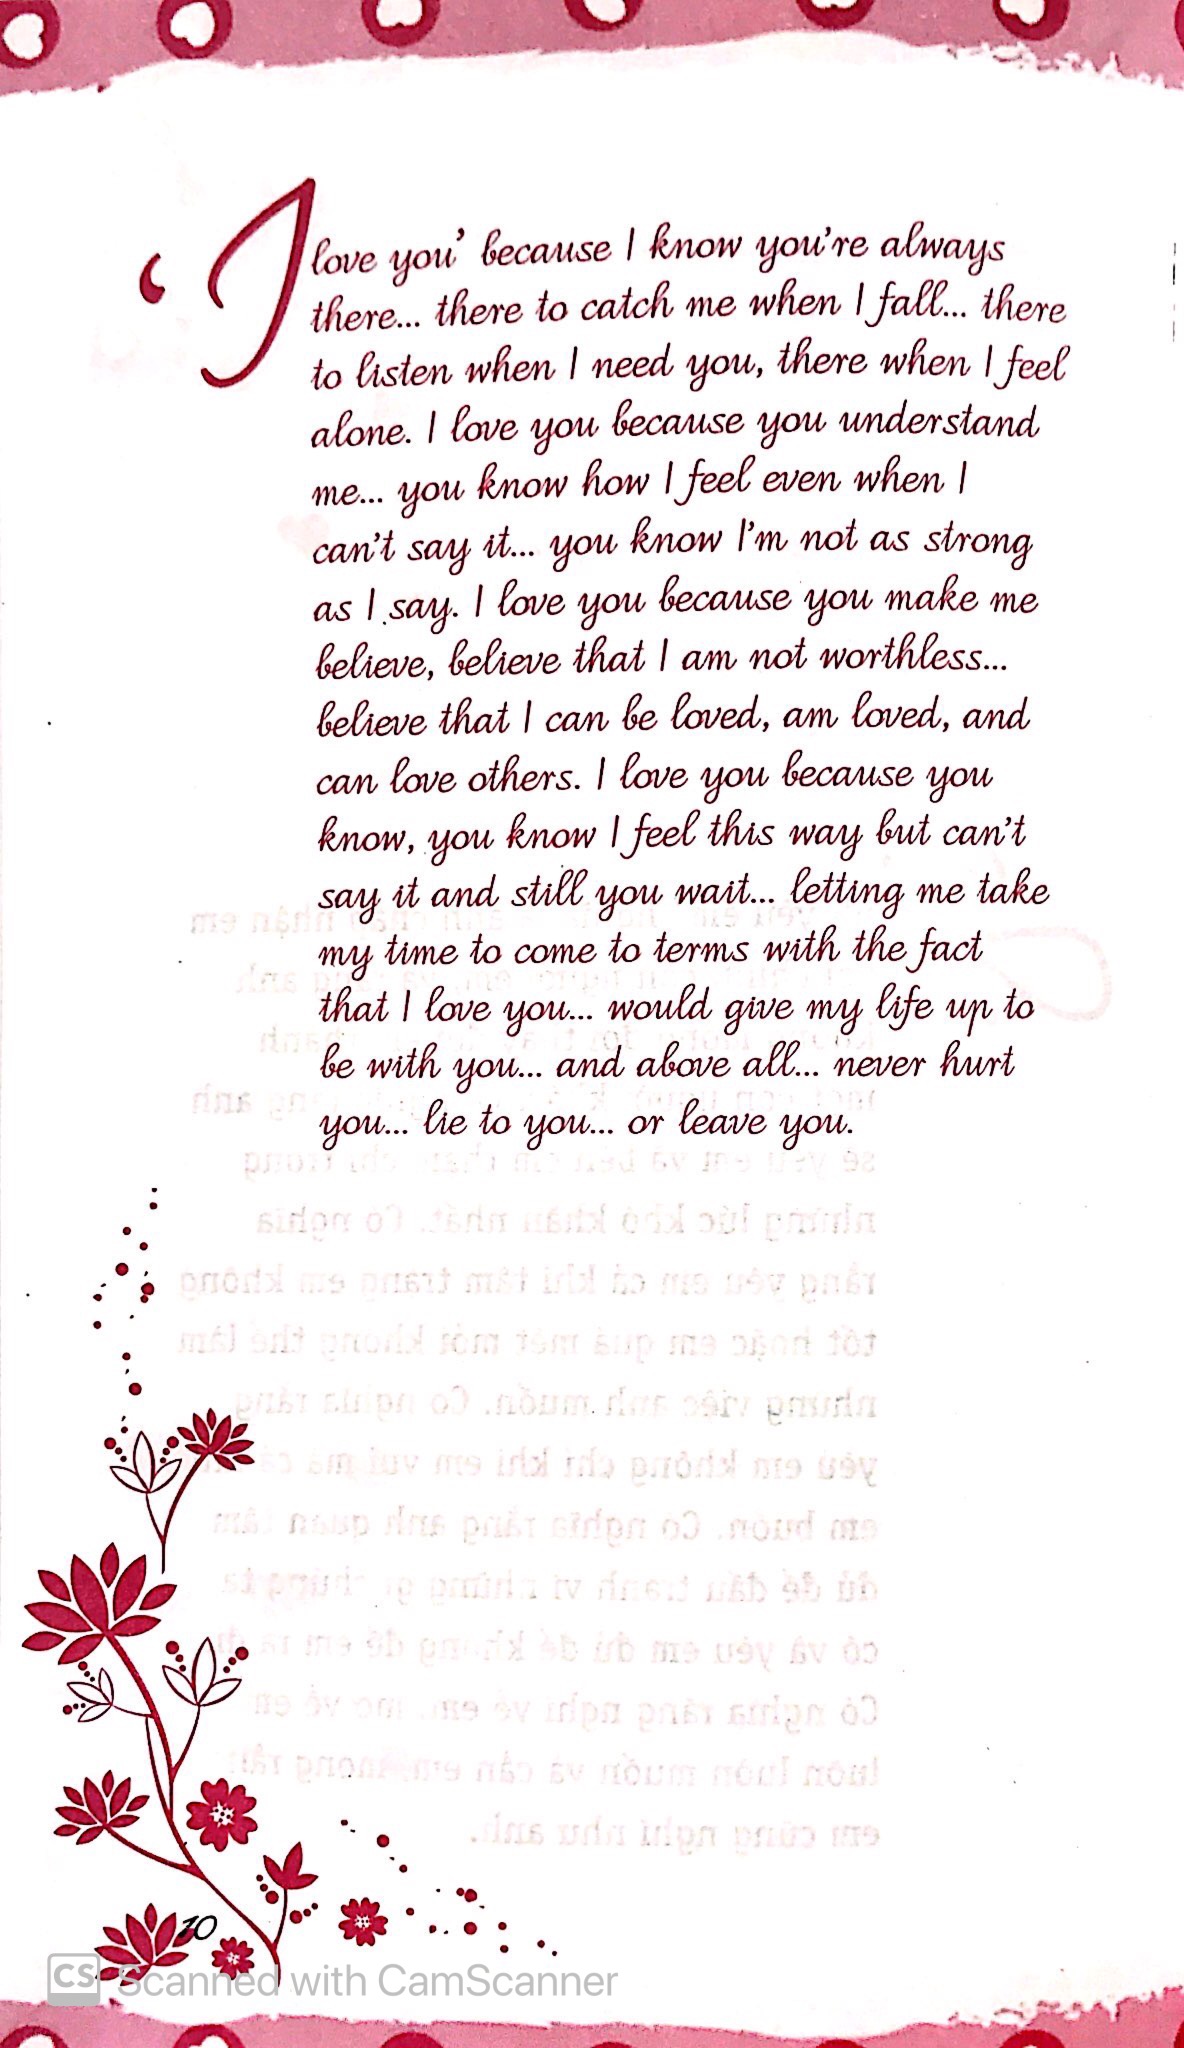 ‘I love you’ because I know you’re always
there... there to catch me when I fall... there
to listen when I need you, there when I feel
alone. I love you because you understand
me... you know how I feel even when I
can’t say it... you know I’m not as strong
as I say. I love you because you make me
believe, believe that I am not worthless...
believe that I can be loved, am loved, and
can love others. I love you because you
know, you know I feel this way but can’t
say it and still you wait... letting me take
my time to come to terms with the fact
that I love you... would give my life up to
be with you... and above all... never hurt
you... lie to you... or leave you.
10
CS Scanned with CamScanner